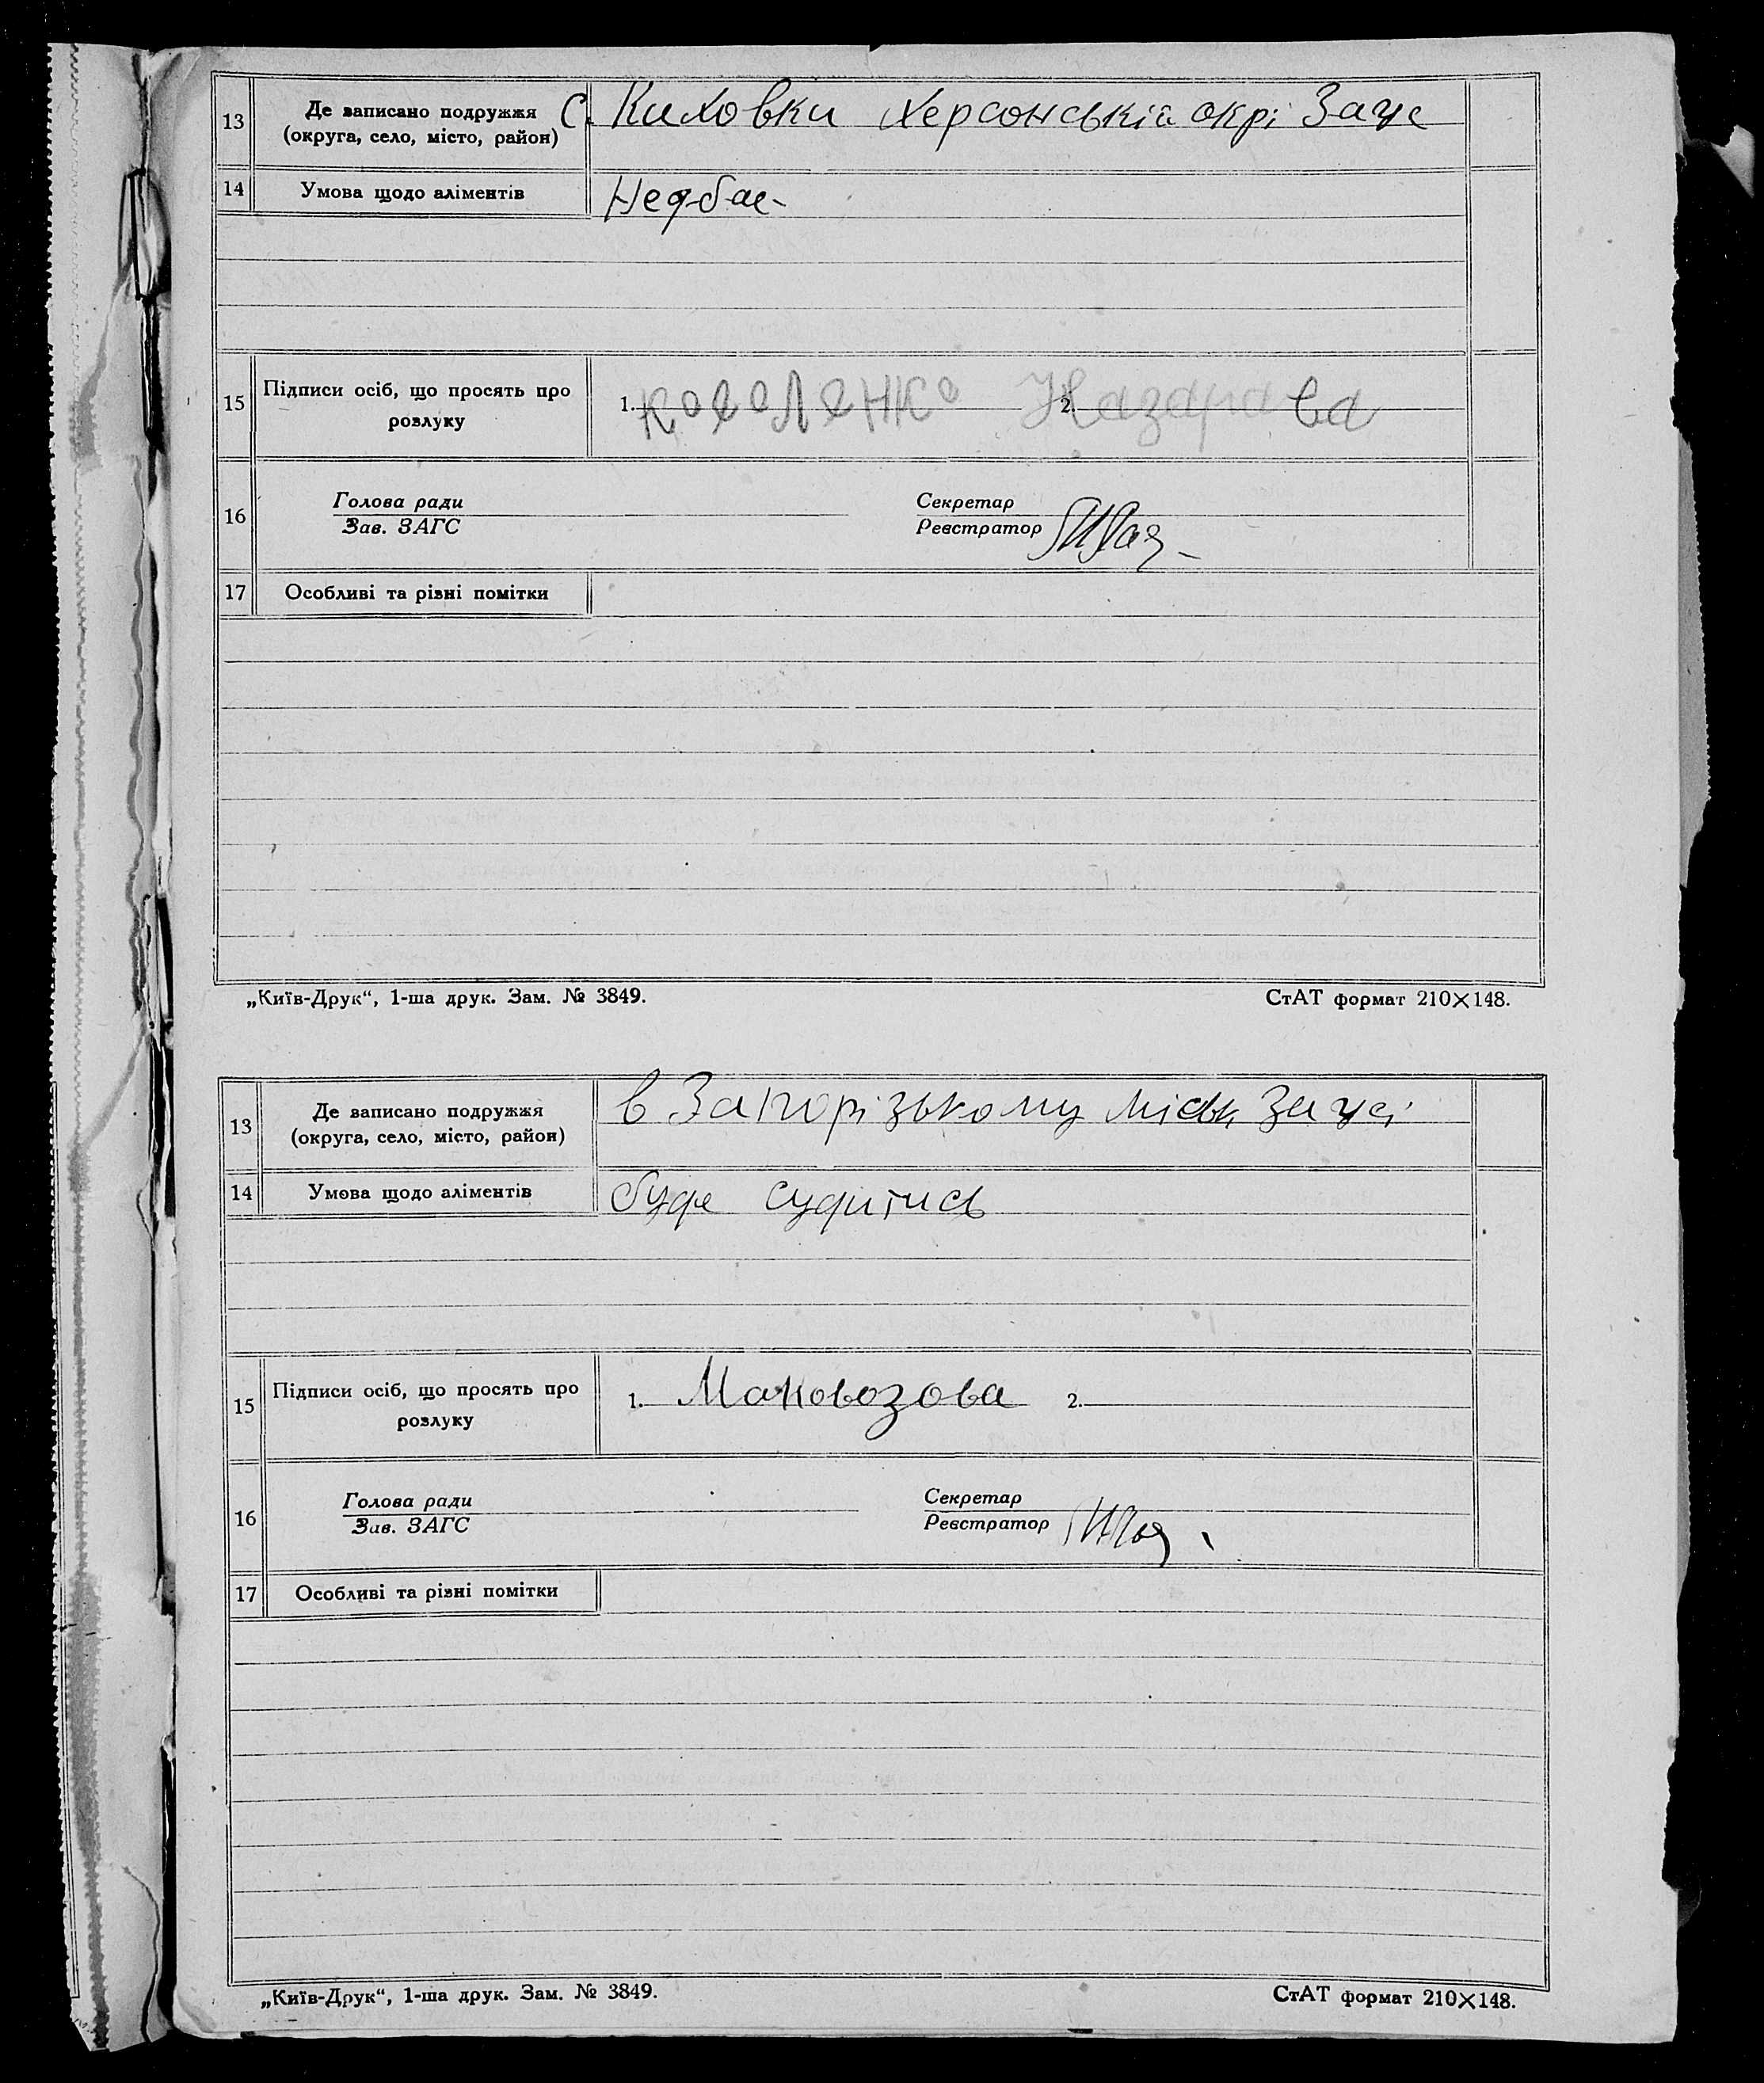 13 Де записано подружжя (округа, село, місто, район) С. Каховки Херсонській окрі Загс
14 Умова щодо аліментів
15 Підписи осіб, що просять про розлуку 1. Коваленко 2. Назарова
16 Голова ради Зав. ЗАГС Секретар Реєстратор
17 Особливі та різні помітки
„Київ-Друк“, 1-ша друк. Зам. № 3849. СтАТ формат 210×148.
13 Де записано подружжя (округа, село, місто, район) в Запорізькому міськ загсі
14 Умова щодо аліментів буде судитись
15 Підписи осіб, що просять про розлуку 1. Маковозова 2.
16 Голова ради Зав. ЗАГС Секретар Реєстратор
17 Особливі та різні помітки
„Київ-Друк“, 1-ша друк. Зам. № 3849. СтАТ формат 210×148.